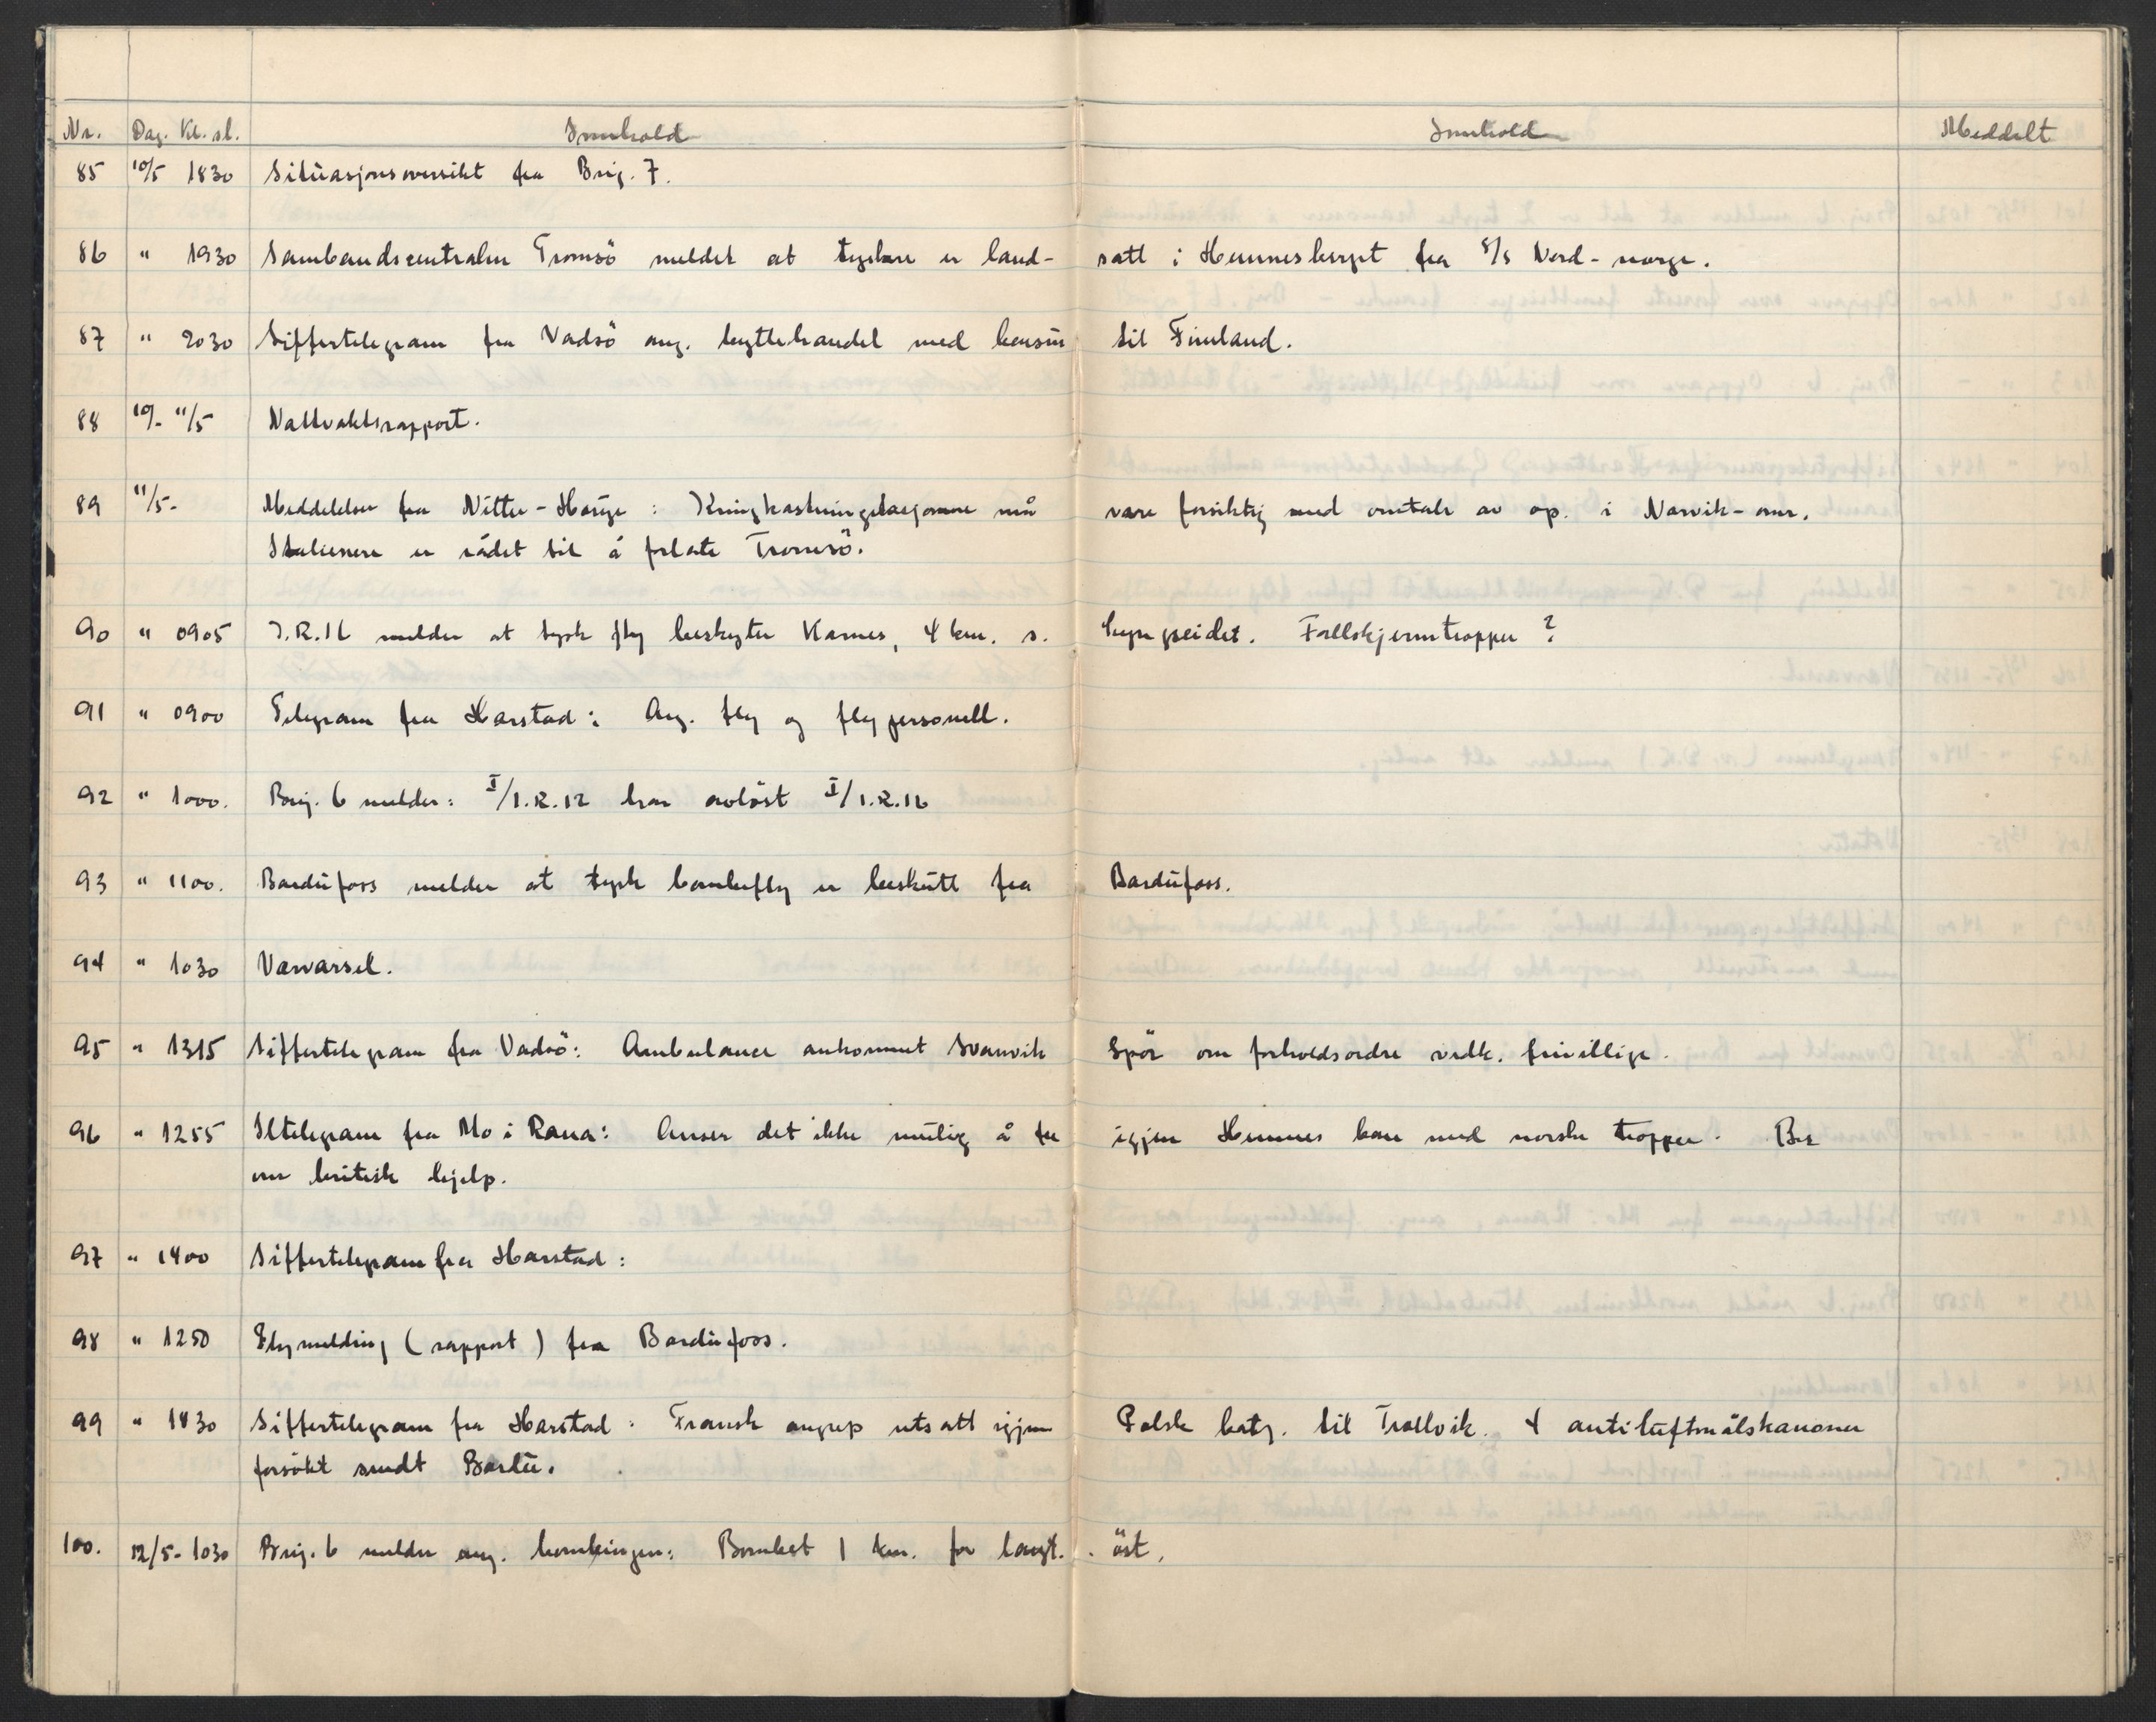 Nr. Dag. Kl.sl. Innhold Innhold Meddelt
85 10/5 1830 Situasjonsoversikt fra Brig. 7.
86 " 1930 Sambandscentralen Tromsö meldet at tyskere er land- satt i Hemnesberget fra S/S Nord-norge.
87 " 2030 Siffertelegram fra Vadsö ang. byttehandel med bensin til Finland.
88 10/- 11/5 Nattvaktsrapport.
89 11/5- Meddelelser fra Nitter-Hauge: Kringkastningstasjonene må være forsiktig med omtale av op. i Narvik-omr.
Italienere er rådet til å forlate Tromsö.
90 " 0905 I.R.16 melder at tysk fly beskyter Karnes, 4 km. s. Lyngseidet. Fallskjermtropper?
91 " 0900 Telegram fra Harstad: Ang. fly og flypersonell.
92 " 1000. Brig. 6 melder: I/I.R.12 har avlöst I/I.R.16
93 " 1100. Bardufoss melder at tysk bombefly er beskutt fra Bardufoss.
94 " 1030 Værvarsel.
95 " 1315 Siffertelegram fra Vadsö: Ambulance ankommet Svanvik Spör om forholdsordre vedk. frivillige.
96 " 1255 Iltelegram fra Mo i Rana: Anser det ikke mulig å ta igjen Hemnes bare med norske tropper. Ber
om britisk hjelp.
97 " 1400 Siffertelegram fra Harstad:
98 " 1250 Flymelding (rapport) fra Bardufoss.
99 " 1830 Siffertelegram fra Harstad: Fransk angrep utsatt igjen Polsk batj. til Trollvik. 4 antiluftmålskanoner
forsökt sendt Bardu.
100. 12/5-1030 Brig. 6 melder ang. bombingen: Bombet 1 km. for langt. öst.